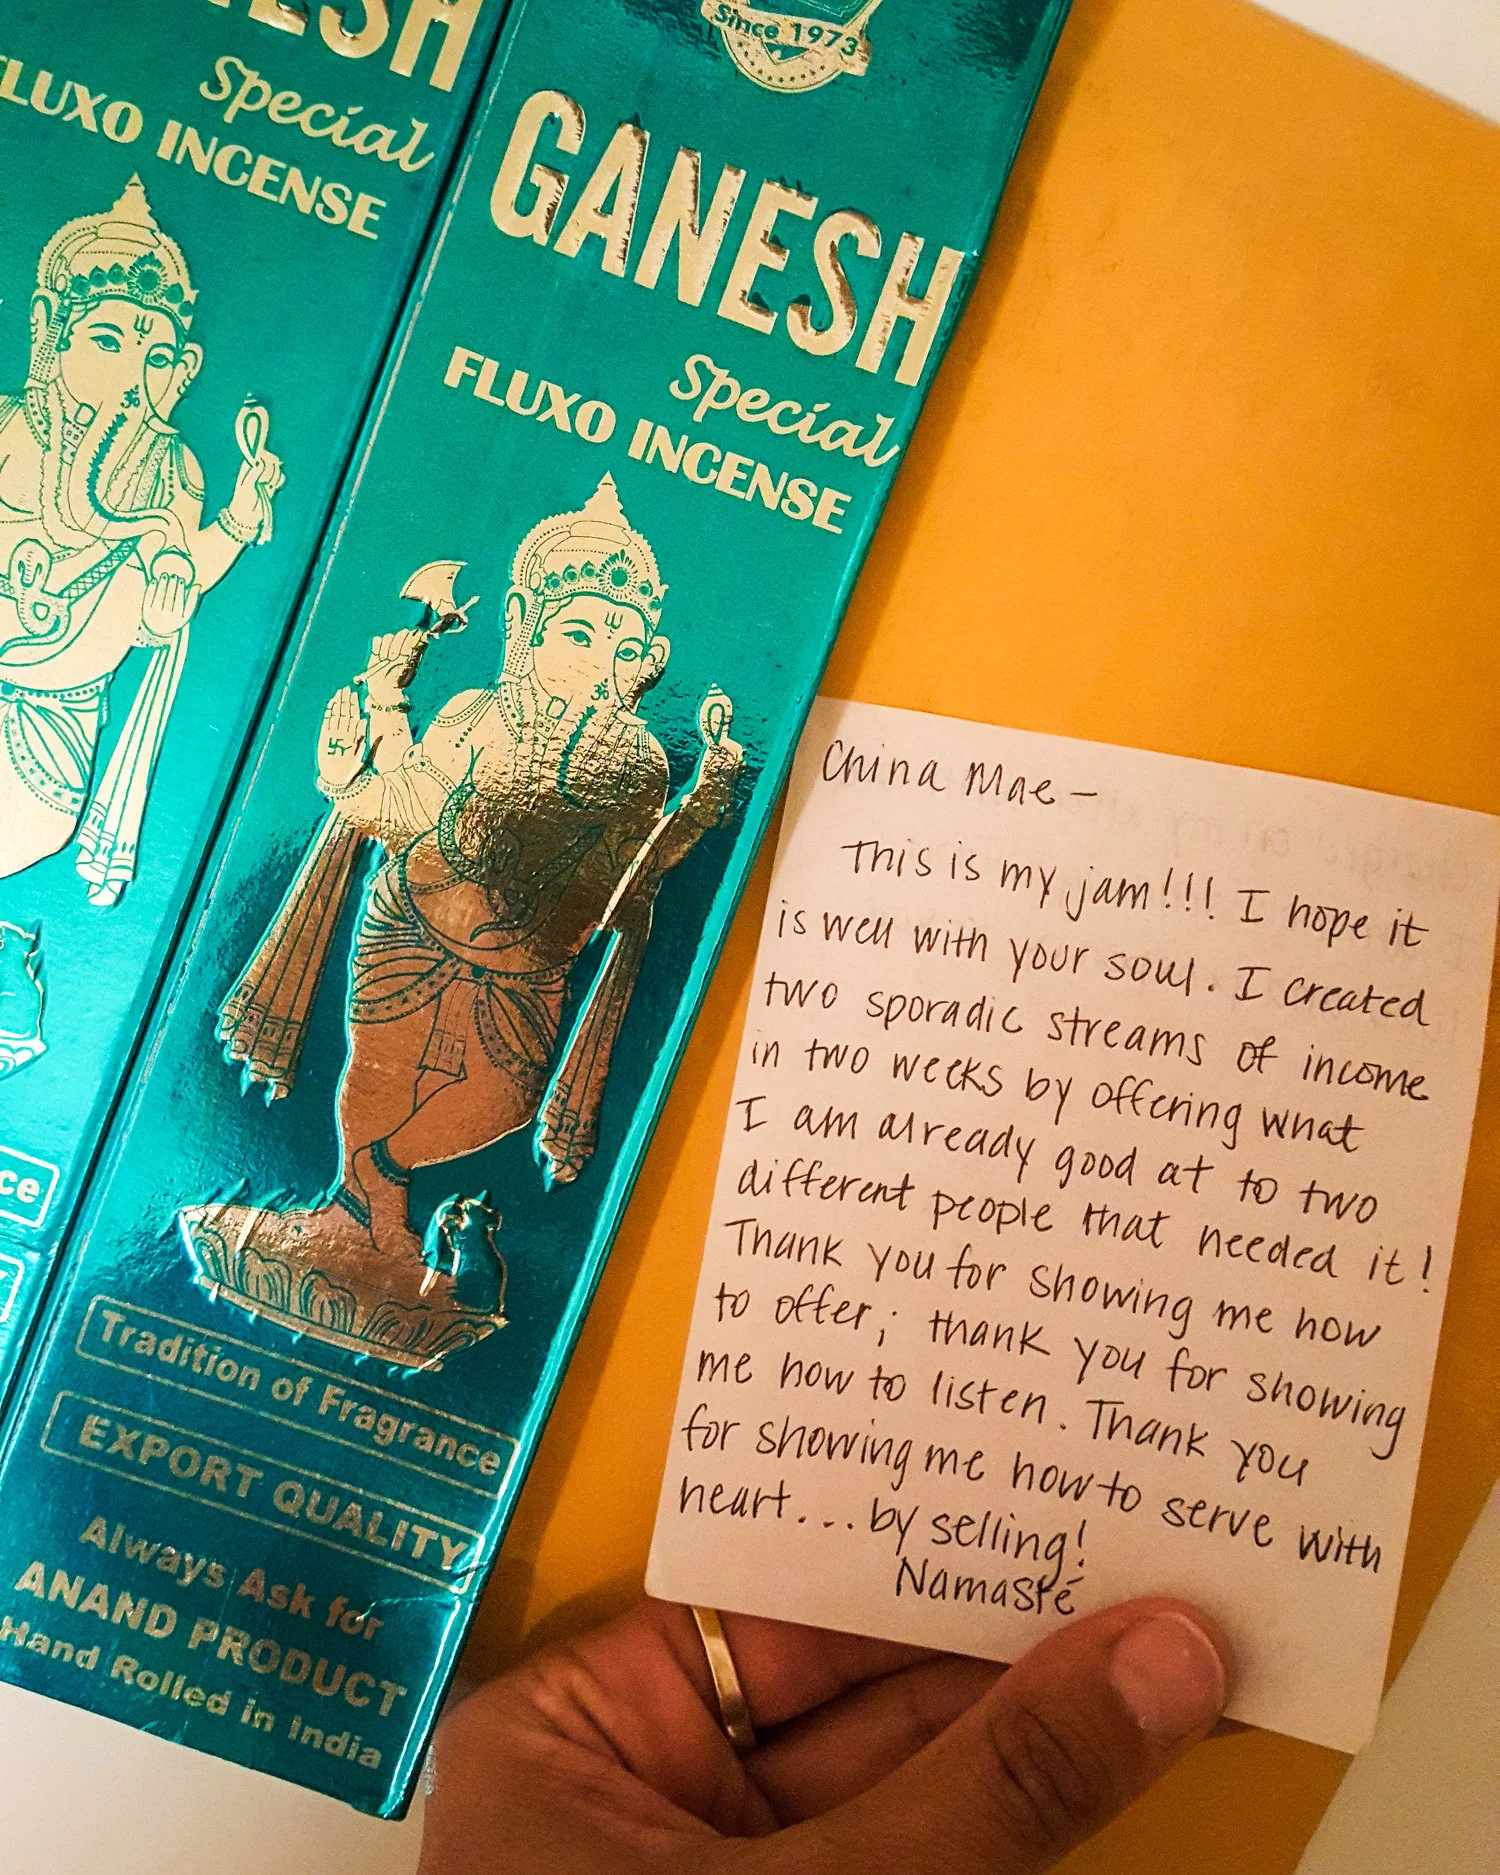 ESH
Special
FLUXO INCENSE
ce
Since 1973
GANESH
Special
FLUXO INCENSE
Tradition of Fragrance
EXPORT QUALITY
Always Ask for
ANAND PRODUCT
Hand Rolled in India
China Mae -
This is my jam!!! I hope it
is well with your soul. I created
two sporadic streams of income
in two weeks by offering what
I am already good at to two
different people that needed it!
Thank you for showing me how
to offer; thank you for showing
me how to listen. Thank you
for showing me how to serve with
heart... by selling!
Namasté